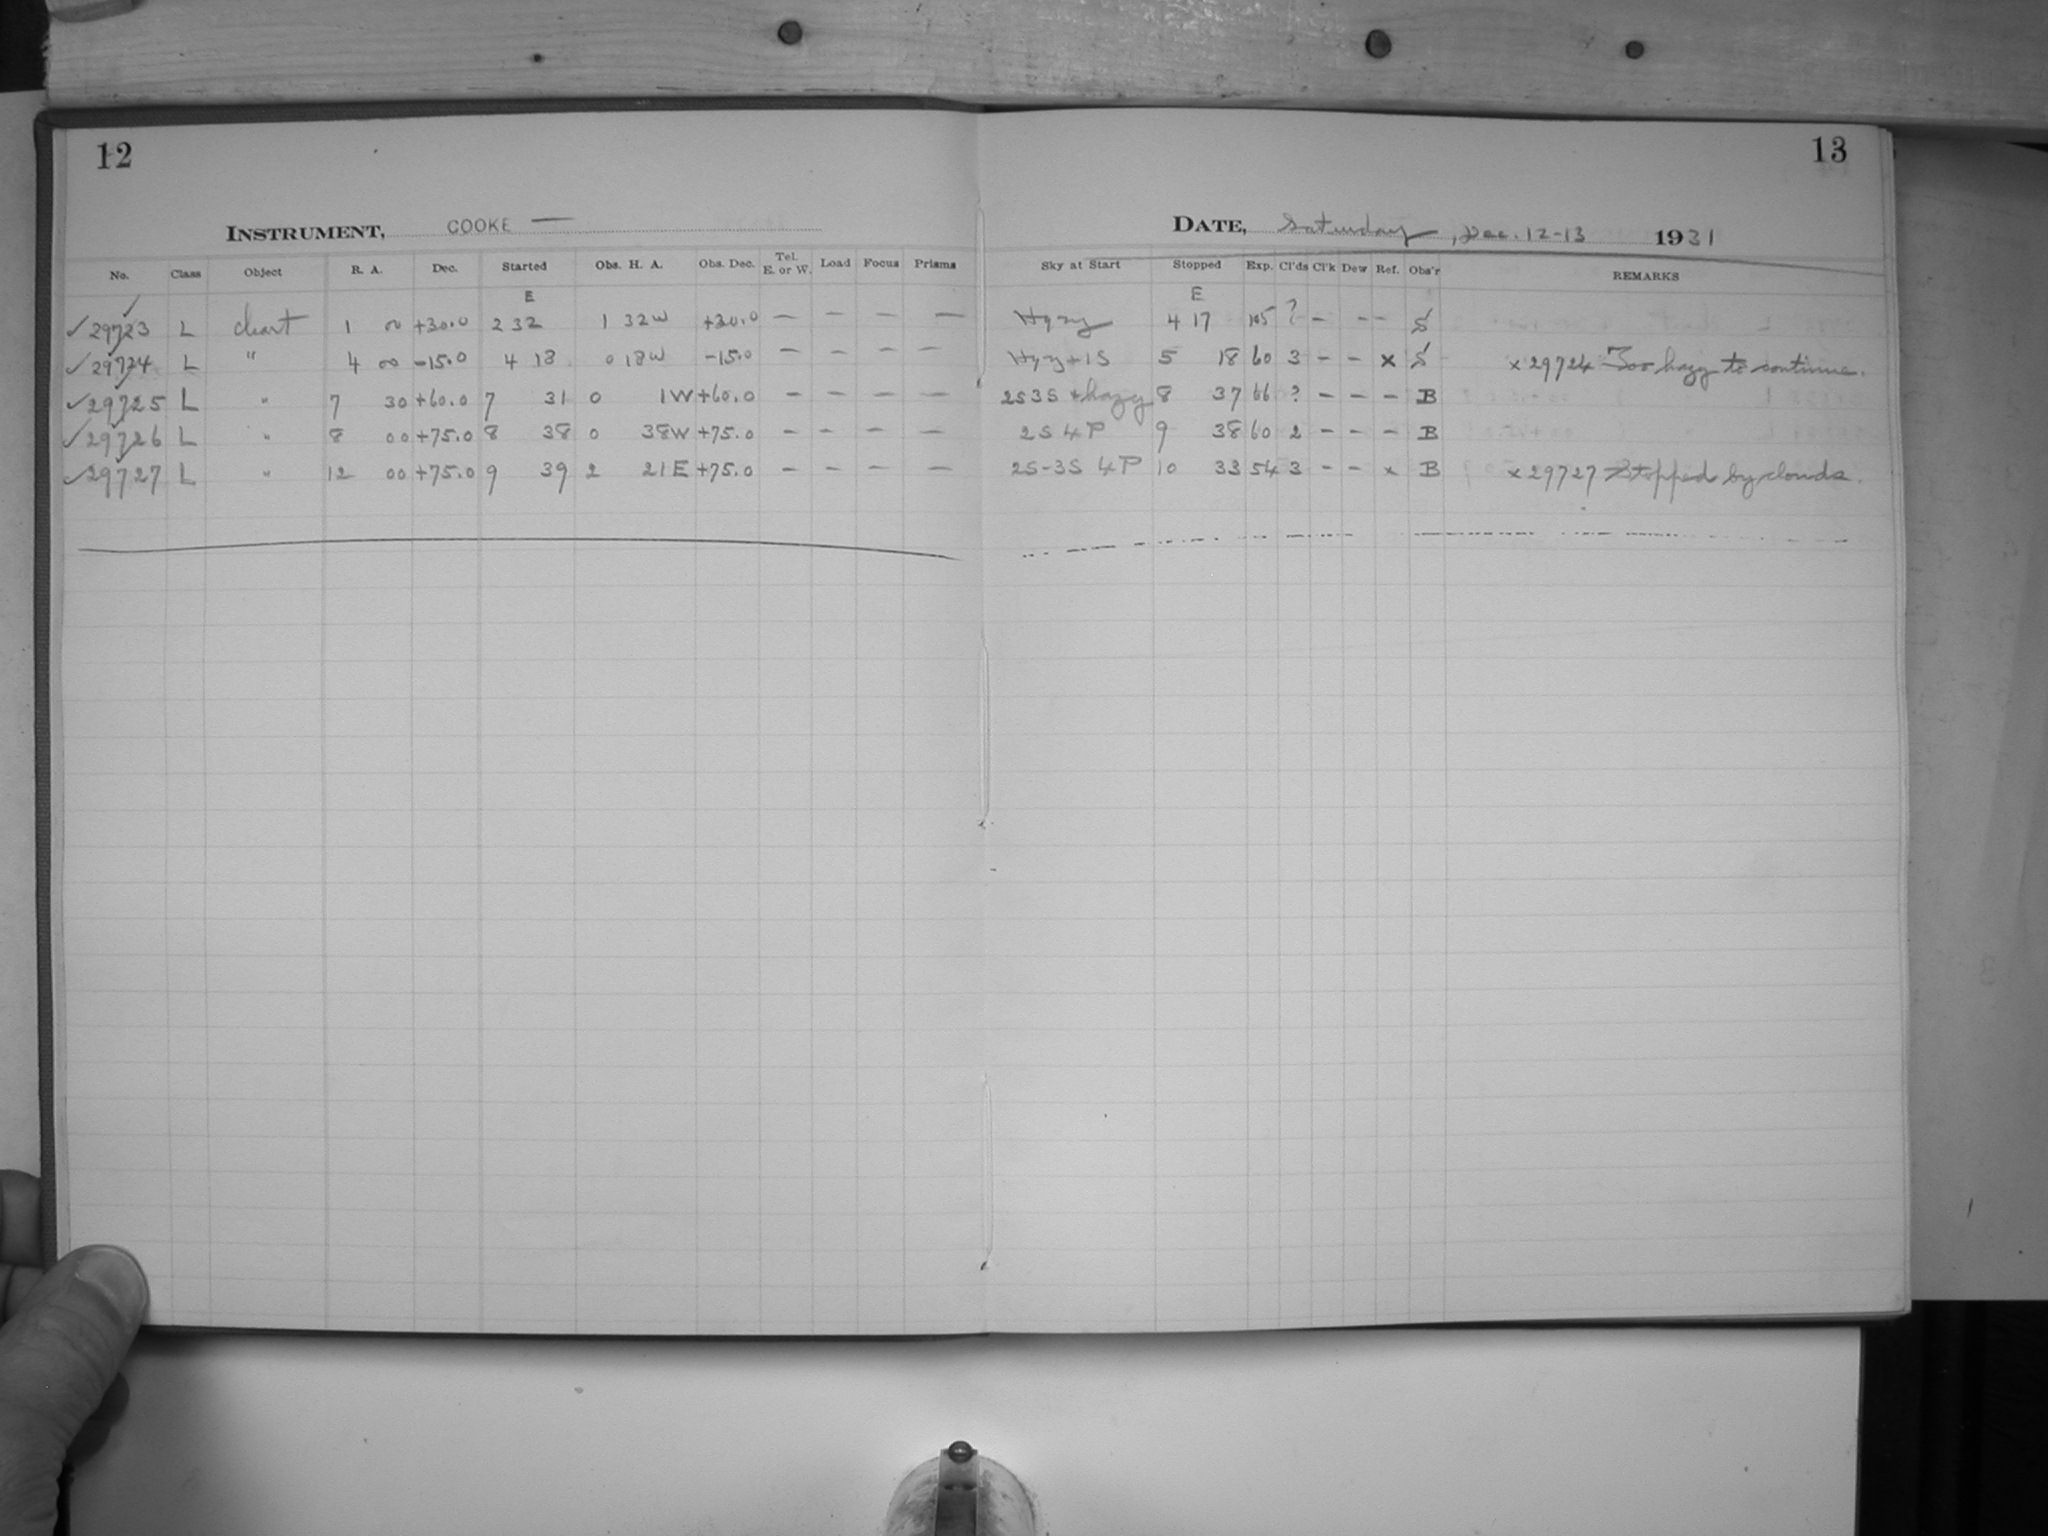 12
13
INSTRUMENT, COOKE —
DATE, Saturday, Dec. 12-13 1931
No. Class Object R. A. Dec. Started Obs. H. A. Obs. Dec. Tel. E. or W. Load Focus Prisms Sky at Start Stopped Exp. Cl'ds Cl'k Dew Ref. Obs'r REMARKS
E E
✓ 29723 L chart 1 00 +30.0 2 32 1 32W +30.0 — — — — Hazy 4 17 105 ? — — — S
✓ 29724 L " 4 00 -15.0 4 18 0 18W -15.0 — — — — Hazy + 1S 5 18 60 3 — — x S x 29724 Too hazy to continue.
✓ 29725 L " 7 30 +60.0 7 31 0 1W +60.0 — — — — 2S3S + hazy 8 37 66 ? — — — B
✓ 29726 L " 8 00 +75.0 8 38 0 38W +75.0 — — — — 2S 4P 9 38 60 2 — — — B
✓ 29727 L " 12 00 +75.0 9 39 2 21E +75.0 — — — — 2S-3S 4P 10 33 54 3 — — x B x 29727 Stopped by clouds.